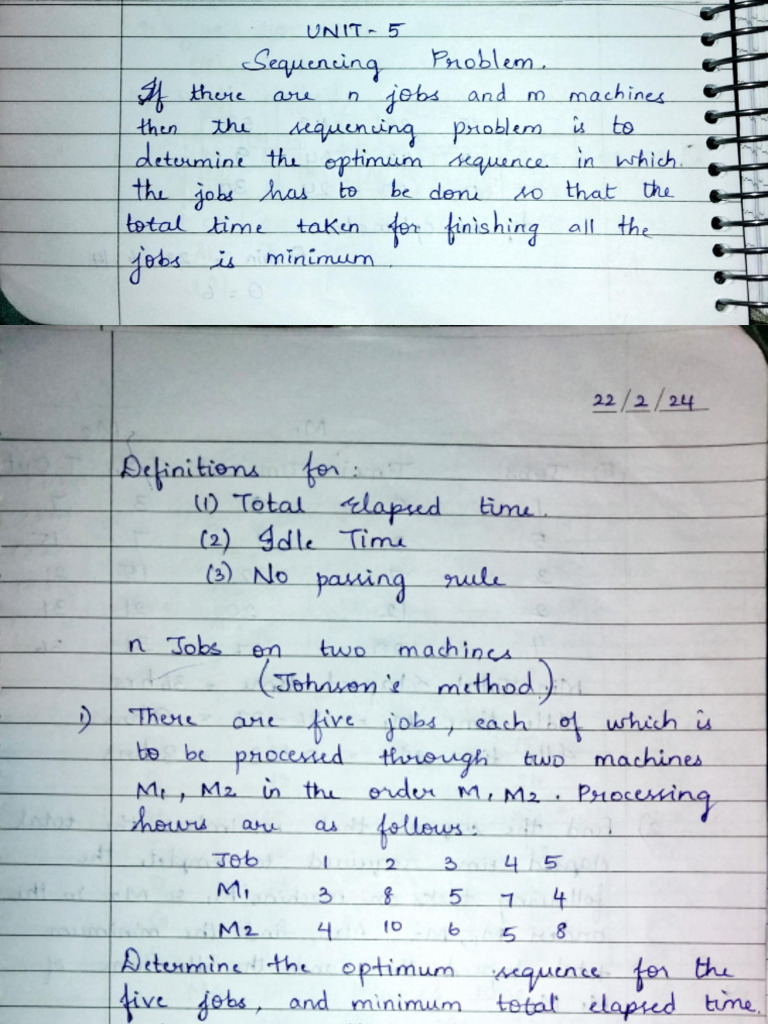 UNIT - 5
Sequencing Problem.
If there are n jobs and m machines
then the sequencing problem is to
determine the optimum sequence in which
the jobs has to be done so that the
total time taken for finishing all the
jobs is minimum.
22/2/24
Definitions for:
(1) Total Elapsed time.
(2) Idle Time
(3) No passing rule
n Jobs on two machines
(Johnson's method)
1) There are five jobs, each of which is
to be processed through two machines
M1, M2 in the order M1 M2. Processing
hours are as follows:
Job 1 2 3 4 5
M1 3 8 5 7 4
M2 4 10 6 5 8
Determine the optimum sequence for the
five jobs, and minimum total elapsed time.